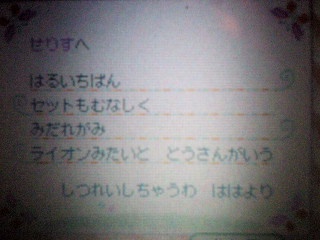 せりすへ
はるいちばん
セットもむなしく
みだれがみ
ライオンみたいと　とうさんがいう
しつれいしちゃうわ　ははより